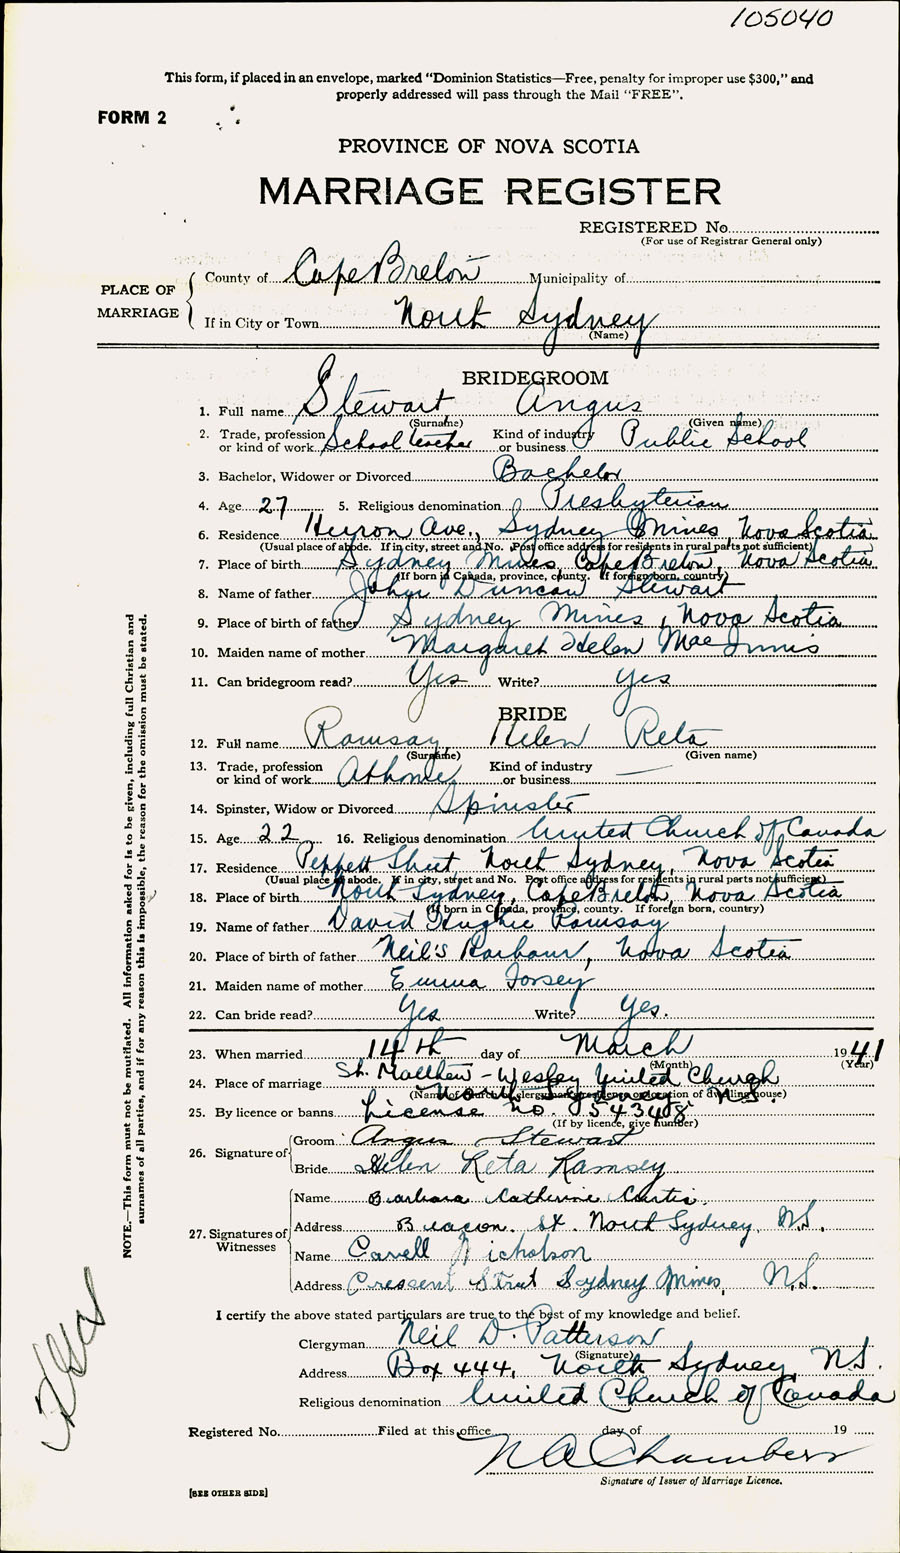 105040
This form, if placed in an envelope, marked "Dominion Statistics—Free, penalty for improper use $300," and
properly addressed will pass through the Mail "FREE".
FORM 2
PROVINCE OF NOVA SCOTIA
MARRIAGE REGISTER
REGISTERED No.
(For use of Registrar General only)
PLACE OF MARRIAGE
County of Cape Breton Municipality of
If in City or Town North Sydney
(Name)
BRIDEGROOM
1. Full name Stewart Angus
(Surname) (Given name)
2. Trade, profession or kind of work School teacher Kind of industry or business Public School
3. Bachelor, Widower or Divorced Bachelor
4. Age 27 5. Religious denomination Presbyterian
6. Residence Ave., Sydney Mines, Nova Scotia
(Usual place of abode. If in city, street and No. Post office address for residents in rural parts not sufficient)
7. Place of birth Sydney Mines, Cape Breton, Nova Scotia
(If born in Canada, province, county. If foreign born, country)
8. Name of father John Duncan Stewart
9. Place of birth of father Sydney Mines, Nova Scotia
10. Maiden name of mother Margaret Helen MacInnis
11. Can bridegroom read? Yes Write? Yes
BRIDE
12. Full name Ramsay Helen Reta
(Surname) (Given name)
13. Trade, profession or kind of work At home Kind of industry or business —
14. Spinster, Widow or Divorced Spinster
15. Age 22 16. Religious denomination United Church of Canada
17. Residence Peppett Street North Sydney, Nova Scotia
(Usual place of abode. If in city, street and No. Post office address for residents in rural parts not sufficient)
18. Place of birth North Sydney, Cape Breton, Nova Scotia
(If born in Canada, province, county. If foreign born, country)
19. Name of father David Hughie Ramsay
20. Place of birth of father Neil's Harbour, Nova Scotia
21. Maiden name of mother Emma Dorsey
22. Can bride read? Yes Write? Yes.
23. When married 14th day of March 1941
(Month) (Year)
24. Place of marriage St. Matthew - Wesley United Church
North Sydney N.S.
(Name of church, clergyman's residence or location of dwelling house)
25. By licence or banns License No. 543408
(If by licence, give number)
26. Signature of
Groom Angus Stewart
Bride Helen Reta Ramsey
27. Signatures of Witnesses
Name Barbara Catherine Curtis
Address Beacon. St. North Sydney, N.S.
Name Cavell Nicholson
Address Crescent Street Sydney Mines, N.S.
I certify the above stated particulars are true to the best of my knowledge and belief.
Clergyman Neil D. Patterson
(Signature)
Address Box 444, North Sydney N.S.
Religious denomination United Church of Canada
Registered No. Filed at this office day of 19
N A Chambers
Signature of Issuer of Marriage Licence.
[SEE OTHER SIDE]
NOTE.—This form must not be mutilated. All information asked for is to be given, including full Christian and
surnames of all parties, and if for any reason this is impossible, the reason for the omission must be stated.